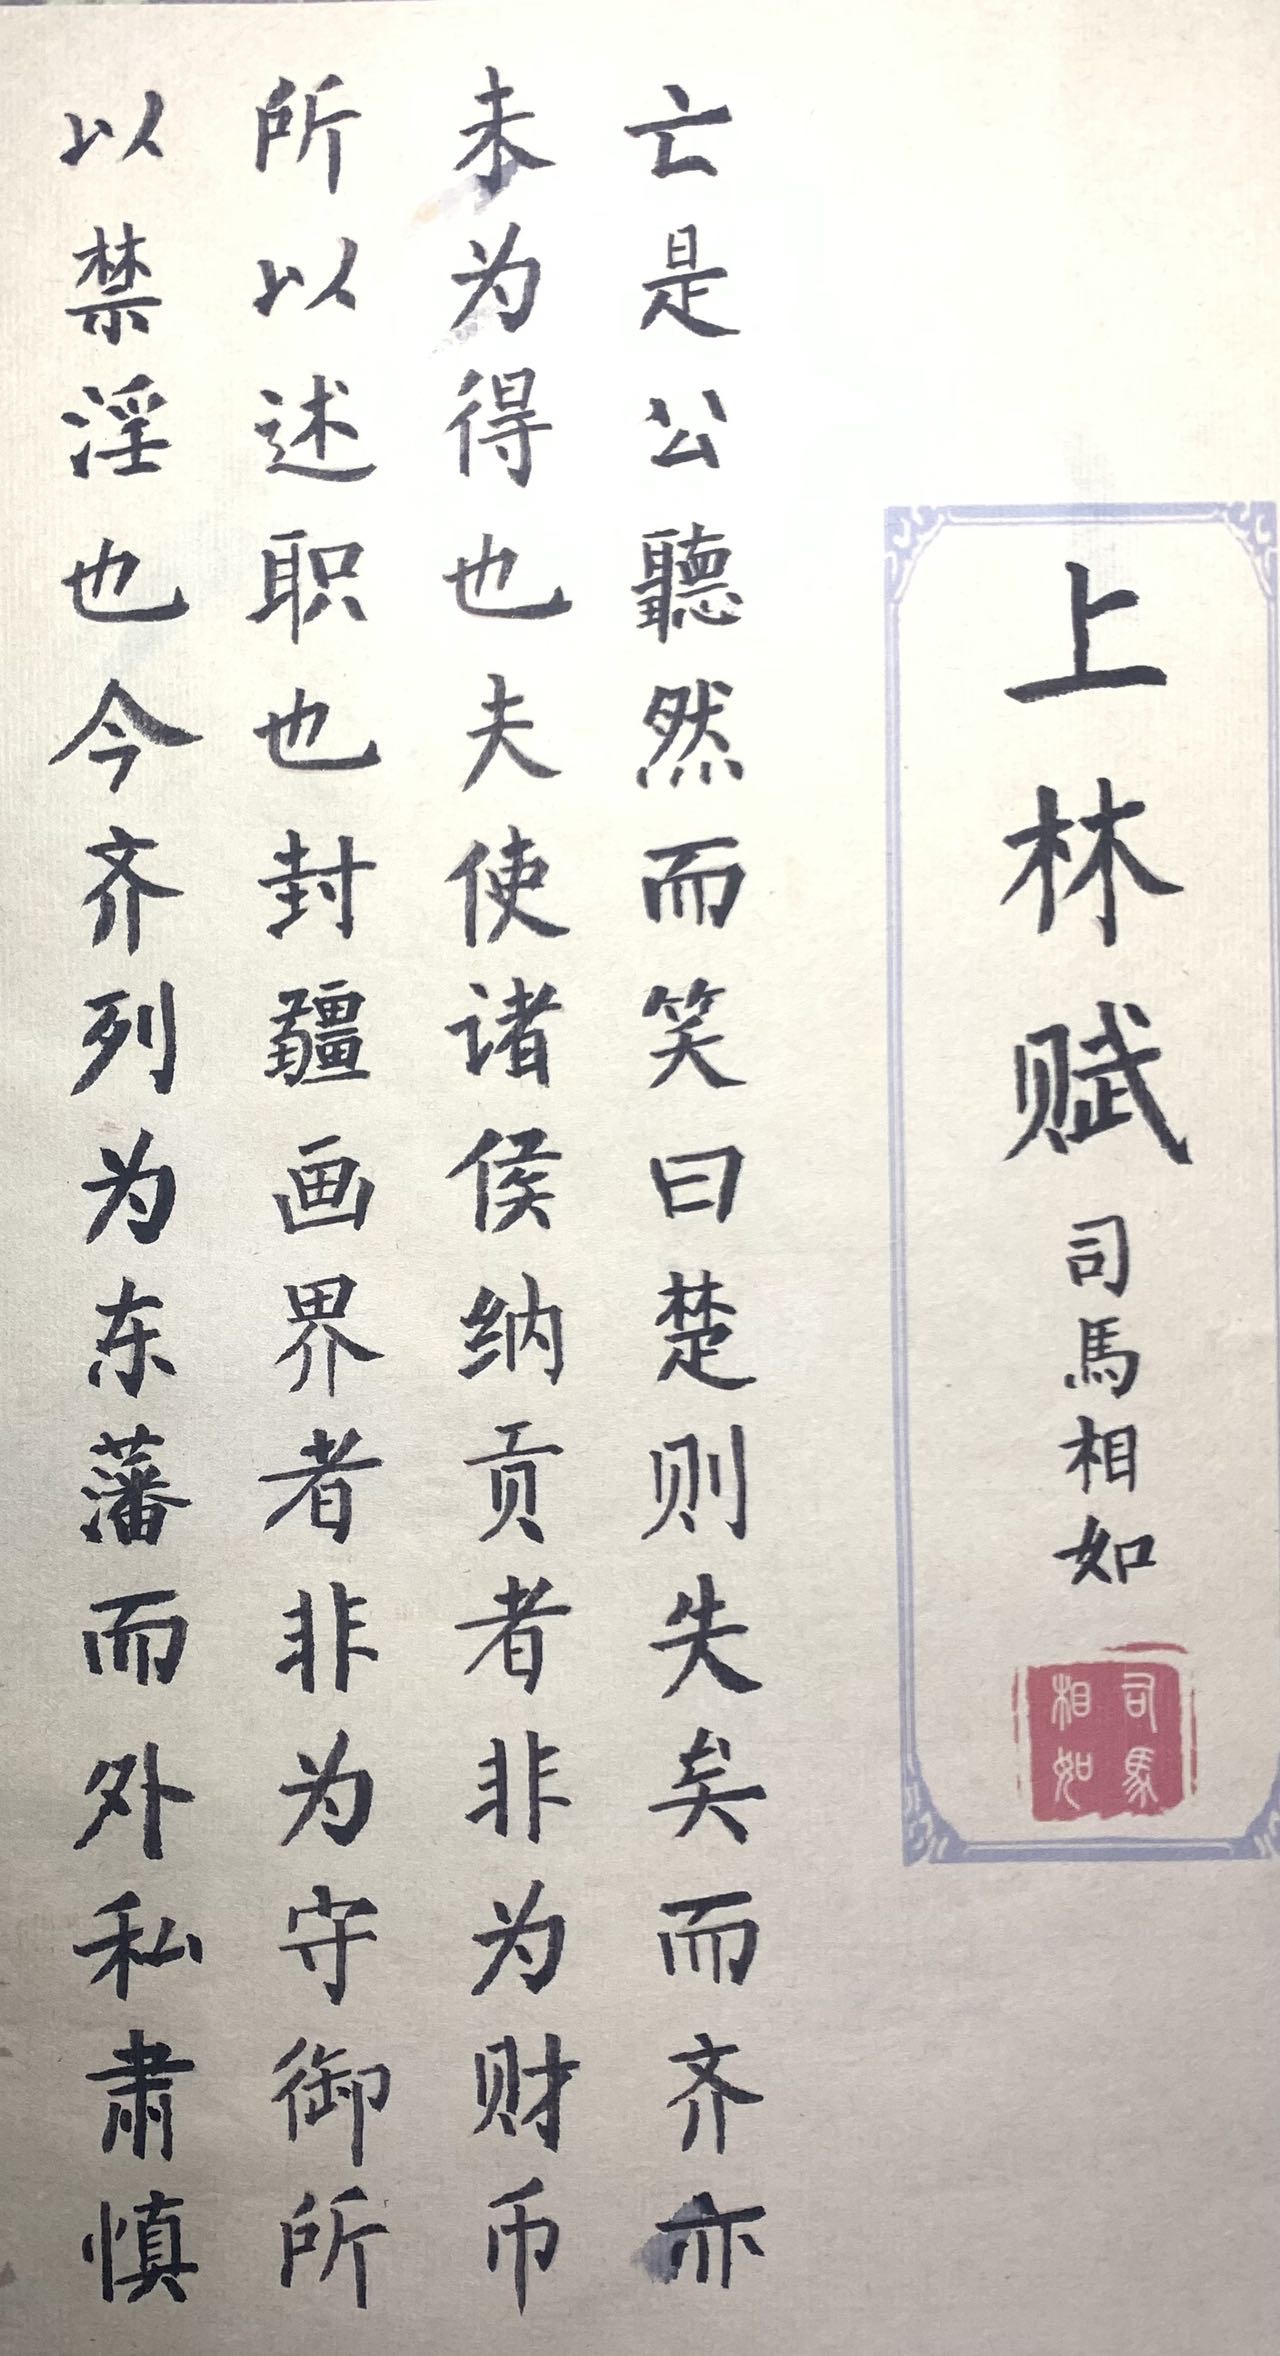 上林赋 司馬相如
司馬相如
亡是公聽然而笑曰楚则失矣而齐亦
未为得也夫使诸侯纳贡者非为财币
所以述职也封疆画界者非为守御所
以禁淫也今齐列为东藩而外私肃慎